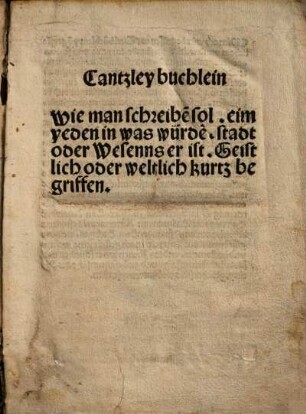 Cantzley buchlein
Wie man schreibē sol. eim
yeden in was würdē. stadt
oder Wesenns er ist. Geist
lich oder weltlich kurtz be
griffen.